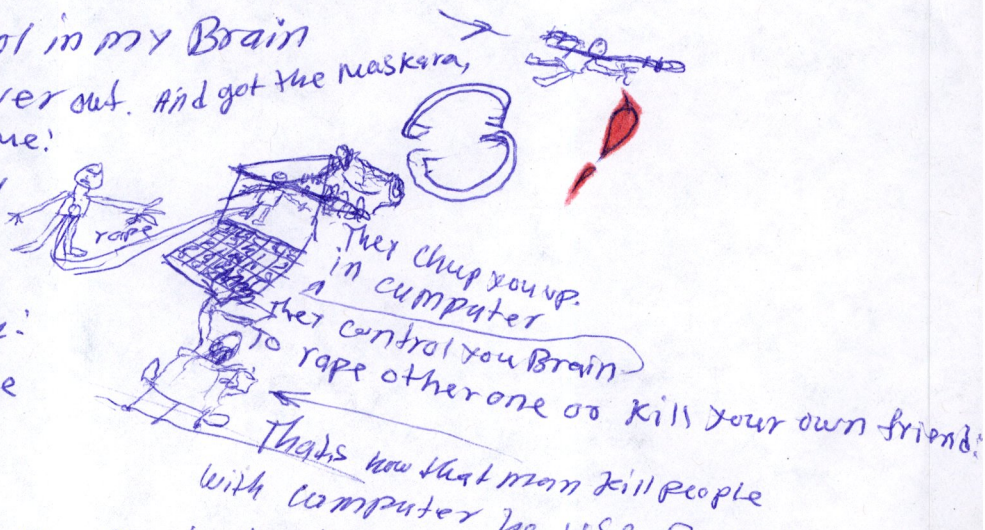 in my Brain
out. And got the maskara,
rape
They Chup you up.
in cumputer
They control you Brain
To rape other one or kill your own friend.
Thats how that man kill people
with computer